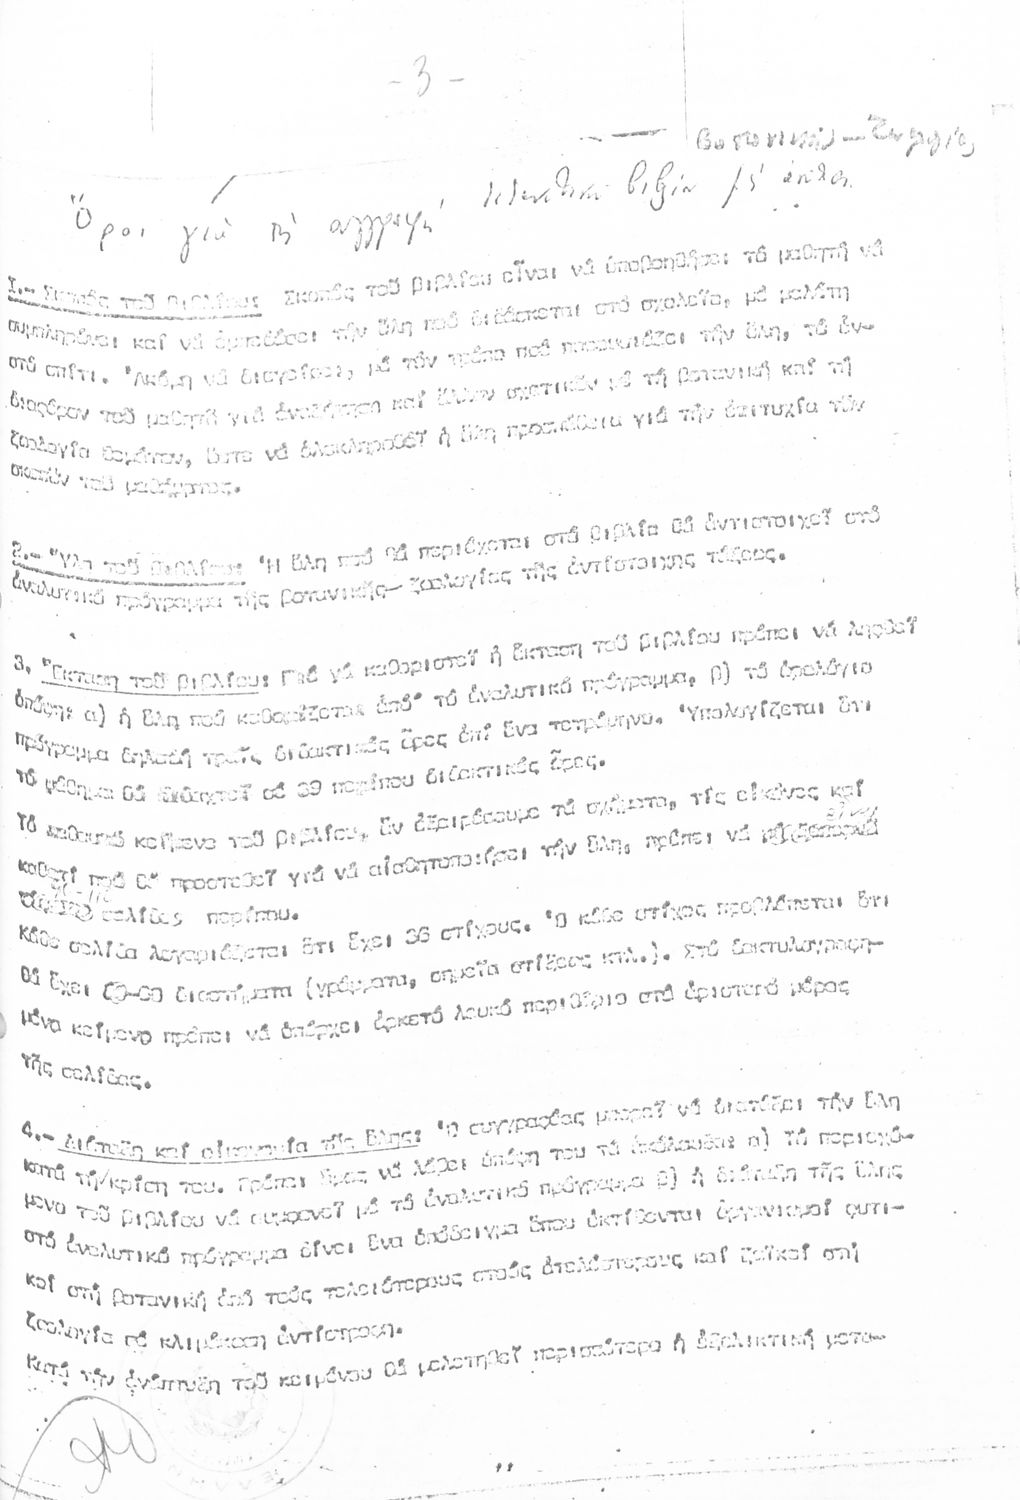 - 3 -
Βοτανικής – Ζωολογίας
Ὅροι γιά τή συγγραφή διδακτικῶν βιβλίων
I.- Σκοπός τοῦ βιβλίου: Σκοπός τοῦ βιβλίου εἶναι νά ὑποβοηθήσει τό μαθητή νά
συμπληρώνει καί νά ἐμπεδώσει τήν ὕλη πού διδάσκεται στό σχολεῖο, μέ μελέτη
στό σπίτι. Ἀκόμη νά διεγείρει, μέ τόν τρόπο πού παρουσιάζει τήν ὕλη, τό ἐν-
διαφέρον τοῦ μαθητῆ γιά ἀναζήτηση καί ἄλλων σχετικῶν μέ τή βοτανική καί τή
ζωολογία θεμάτων, ὥστε νά ὁλοκληρωθεῖ ἡ ὅλη προσπάθεια γιά τήν ἐπιτυχία τῶν
σκοπῶν τοῦ μαθήματος.
2.- Ὕλη τοῦ βιβλίου: Ἡ ὕλη πού θά περιέχεται στά βιβλία θά ἀντιστοιχεῖ στό
ἀναλυτικό πρόγραμμα τῆς βοτανικῆς– ζωολογίας τῆς ἀντίστοιχης τάξεως.
3. Ἔκταση τοῦ βιβλίου: Γιά νά καθοριστεῖ ἡ ἔκταση τοῦ βιβλίου πρέπει νά ληφθεῖ
ὑπόψη: α) ἡ ὕλη πού καθορίζεται ἀπό τό ἀναλυτικό πρόγραμμα, β) τό ὡρολόγιο
πρόγραμμα δηλαδή τρεῖς διδακτικές ὧρες ἐπί ἕνα τετράμηνο. Ὑπολογίζεται ὅτι
τό μάθημα θά διδαχτεῖ σέ 39 περίπου διδακτικές ὧρες.
Τό καθαυτό κείμενο τοῦ βιβλίου, ἄν ἐξαιρέσουμε τά σχήματα, τίς εἰκόνες καί
καθετί πού θά προστεθεῖ γιά νά αἰσθητοποιήσει τήν ὕλη, πρέπει νά
σελίδες περίπου.
Κάθε σελίδα λογαριάζεται ὅτι ἔχει 36 στίχους. Ὁ κάθε στίχος προβλέπεται ὅτι
θά ἔχει διαστήματα (γράμματα, σημεῖα στίξεως κτλ.). Στό δακτυλογραφη-
μένο κείμενο πρέπει νά ὑπάρχει ἀρκετό λευκό περιθώριο στό ἀριστερό μέρος
τῆς σελίδας.
4.- Διάταξη καί οἰκονομία τῆς ὕλης: Ὁ συγγραφέας μπορεῖ νά διατάξει τήν ὕλη
κατά τή κρίση του. Πρέπει ὅμως νά λάβει ὑπόψη του τά ἀκόλουθα: α) Τό περιεχό-
μενο τοῦ βιβλίου νά συμφωνεῖ μέ τό ἀναλυτικό πρόγραμμα β) ἡ διάταξη τῆς ὕλης
στό ἀναλυτικό πρόγραμμα δίνει ἕνα ὑπόδειγμα ὅπου ἐκτίθενται ὀργανισμοί φυτι-
κοί στή βοτανική ἀπό τούς τελειότερους στούς ἀτελέστερους καί ζωϊκοί στή
ζωολογία σέ κλιμάκωση ἀντίστροφη.
Κατά τήν ἀνάπτυξη τοῦ κειμένου θά μελετηθεῖ περισσότερο ἡ ἐξελικτική μετα-